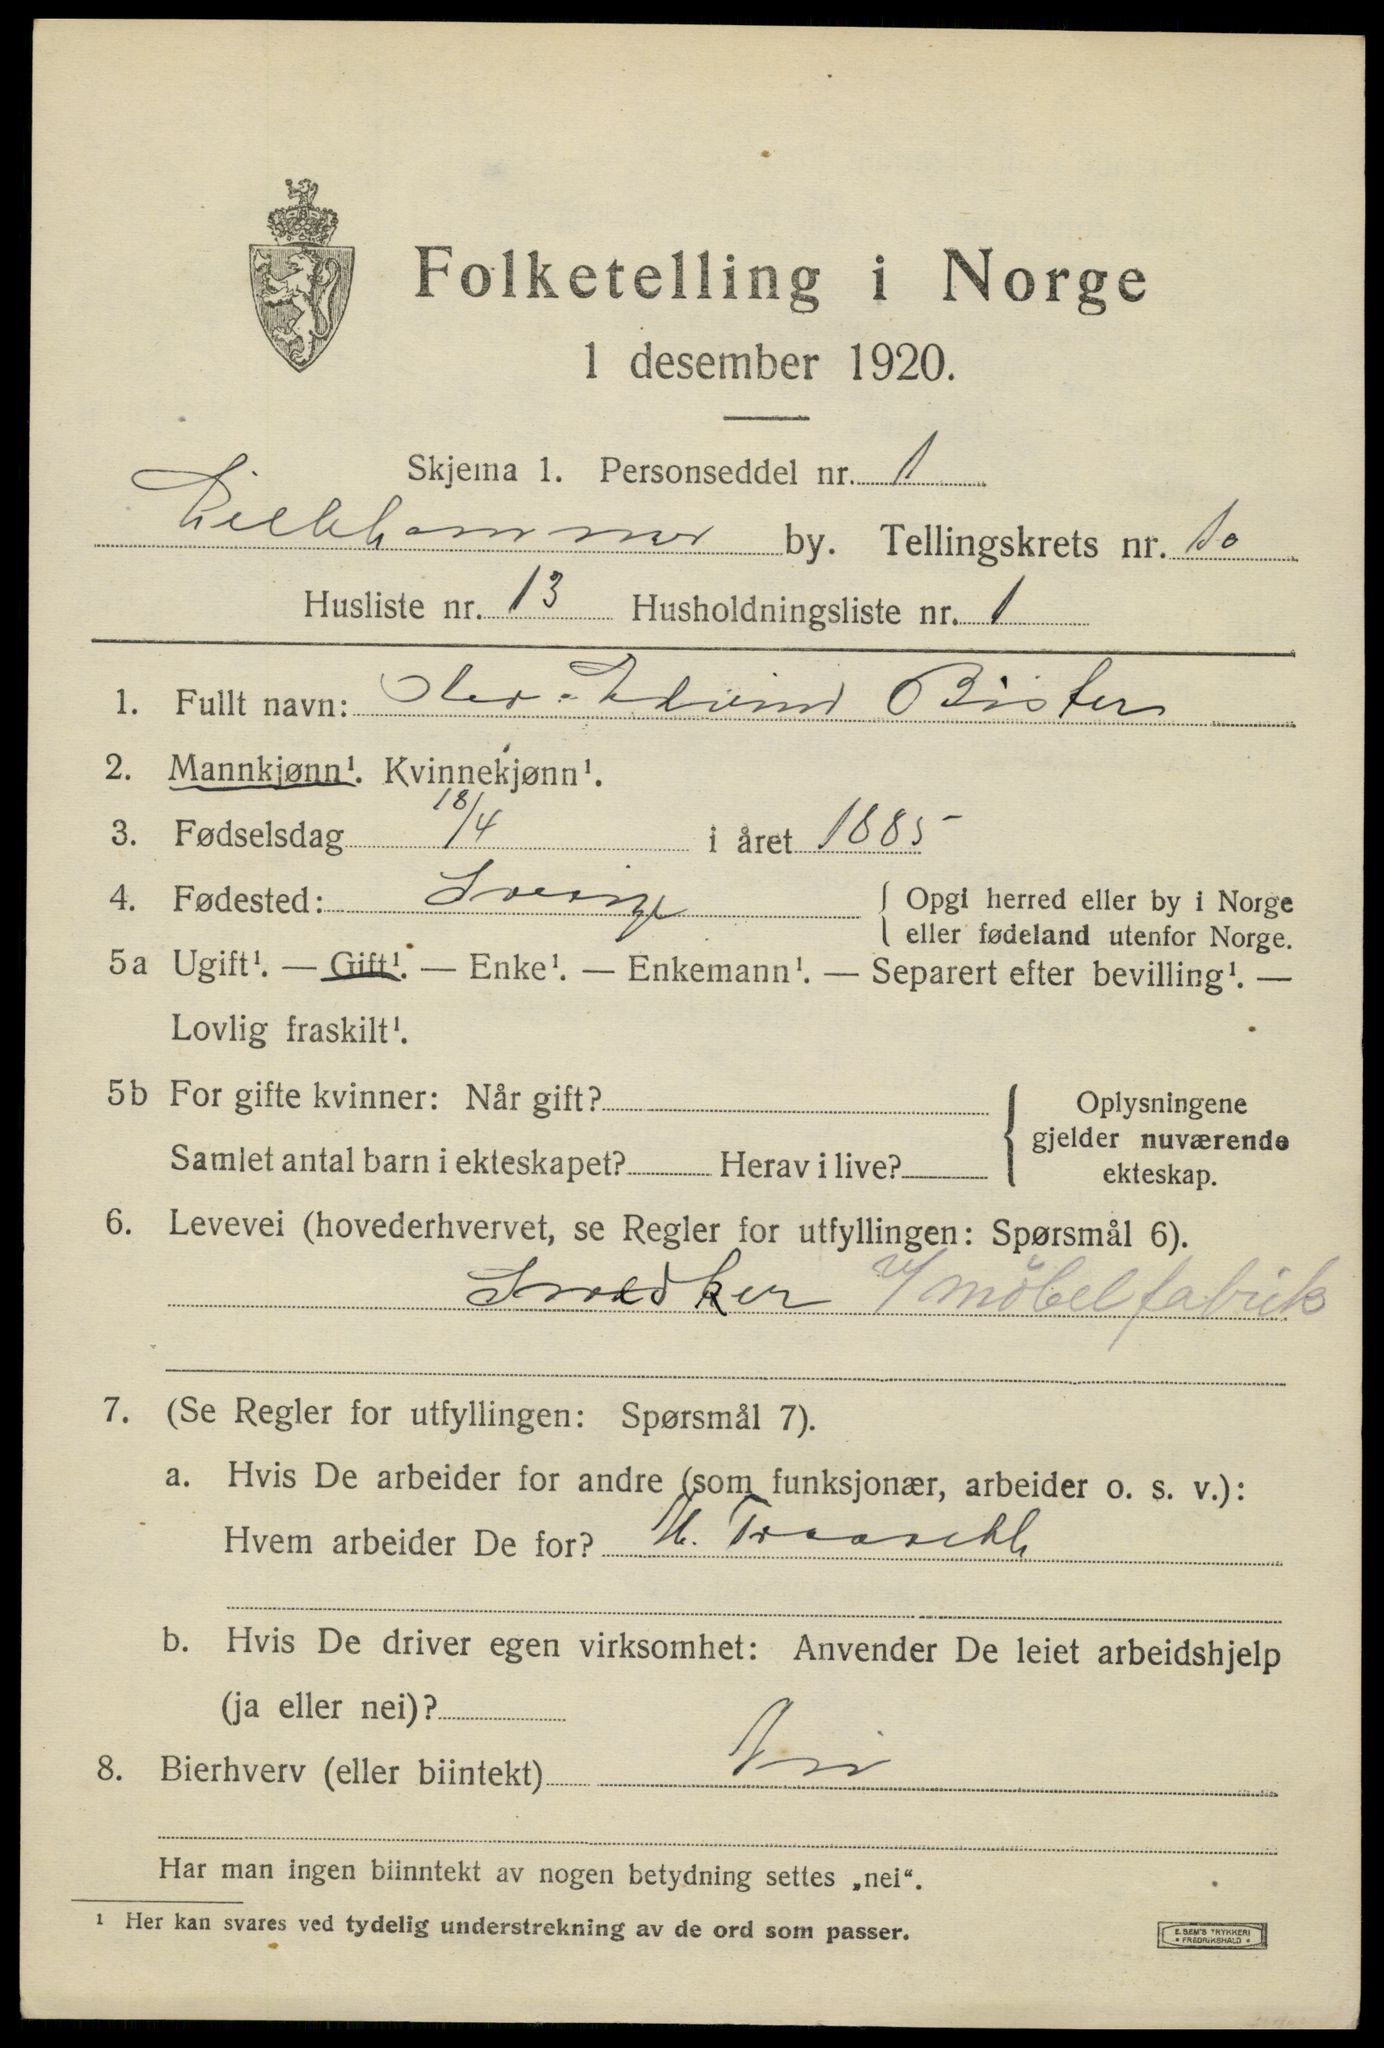 Folketelling i Norge
1 desember 1920.
Skjema 1. Personseddel nr. 1
Lillehammer by. Tellingskrets nr. 10
Husliste nr. 13 Husholdningsliste nr. 1
1. Fullt navn: Edvind Bister
2. Mannkjønn¹. Kvinnekjønn¹.
3. Fødselsdag 18/4 i året 1885
4. Fødested: Sverige { Opgi herred eller by i Norge
eller fødeland utenfor Norge.
5a Ugift¹. — Gift¹. — Enke¹. — Enkemann¹. — Separert efter bevilling¹. —
Lovlig fraskilt¹.
5b For gifte kvinner: Når gift?
Samlet antal barn i ekteskapet? Herav i live?
{ Oplysningene
gjelder nuværende
ekteskap.
6. Levevei (hovederhvervet, se Regler for utfyllingen: Spørsmål 6).
Snedker v/ möbelfabrik
7. (Se Regler for utfyllingen: Spørsmål 7).
a. Hvis De arbeider for andre (som funksjonær, arbeider o. s. v.):
Hvem arbeider De for?
b. Hvis De driver egen virksomhet: Anvender De leiet arbeidshjelp
(ja eller nei)?
8. Bierhverv (eller biintekt) Nei
Har man ingen biinntekt av nogen betydning settes „nei“.
¹ Her kan svares ved tydelig understrekning av de ord som passer.
E. SEM'S TRYKKERI
* FREDRIKSHALD *